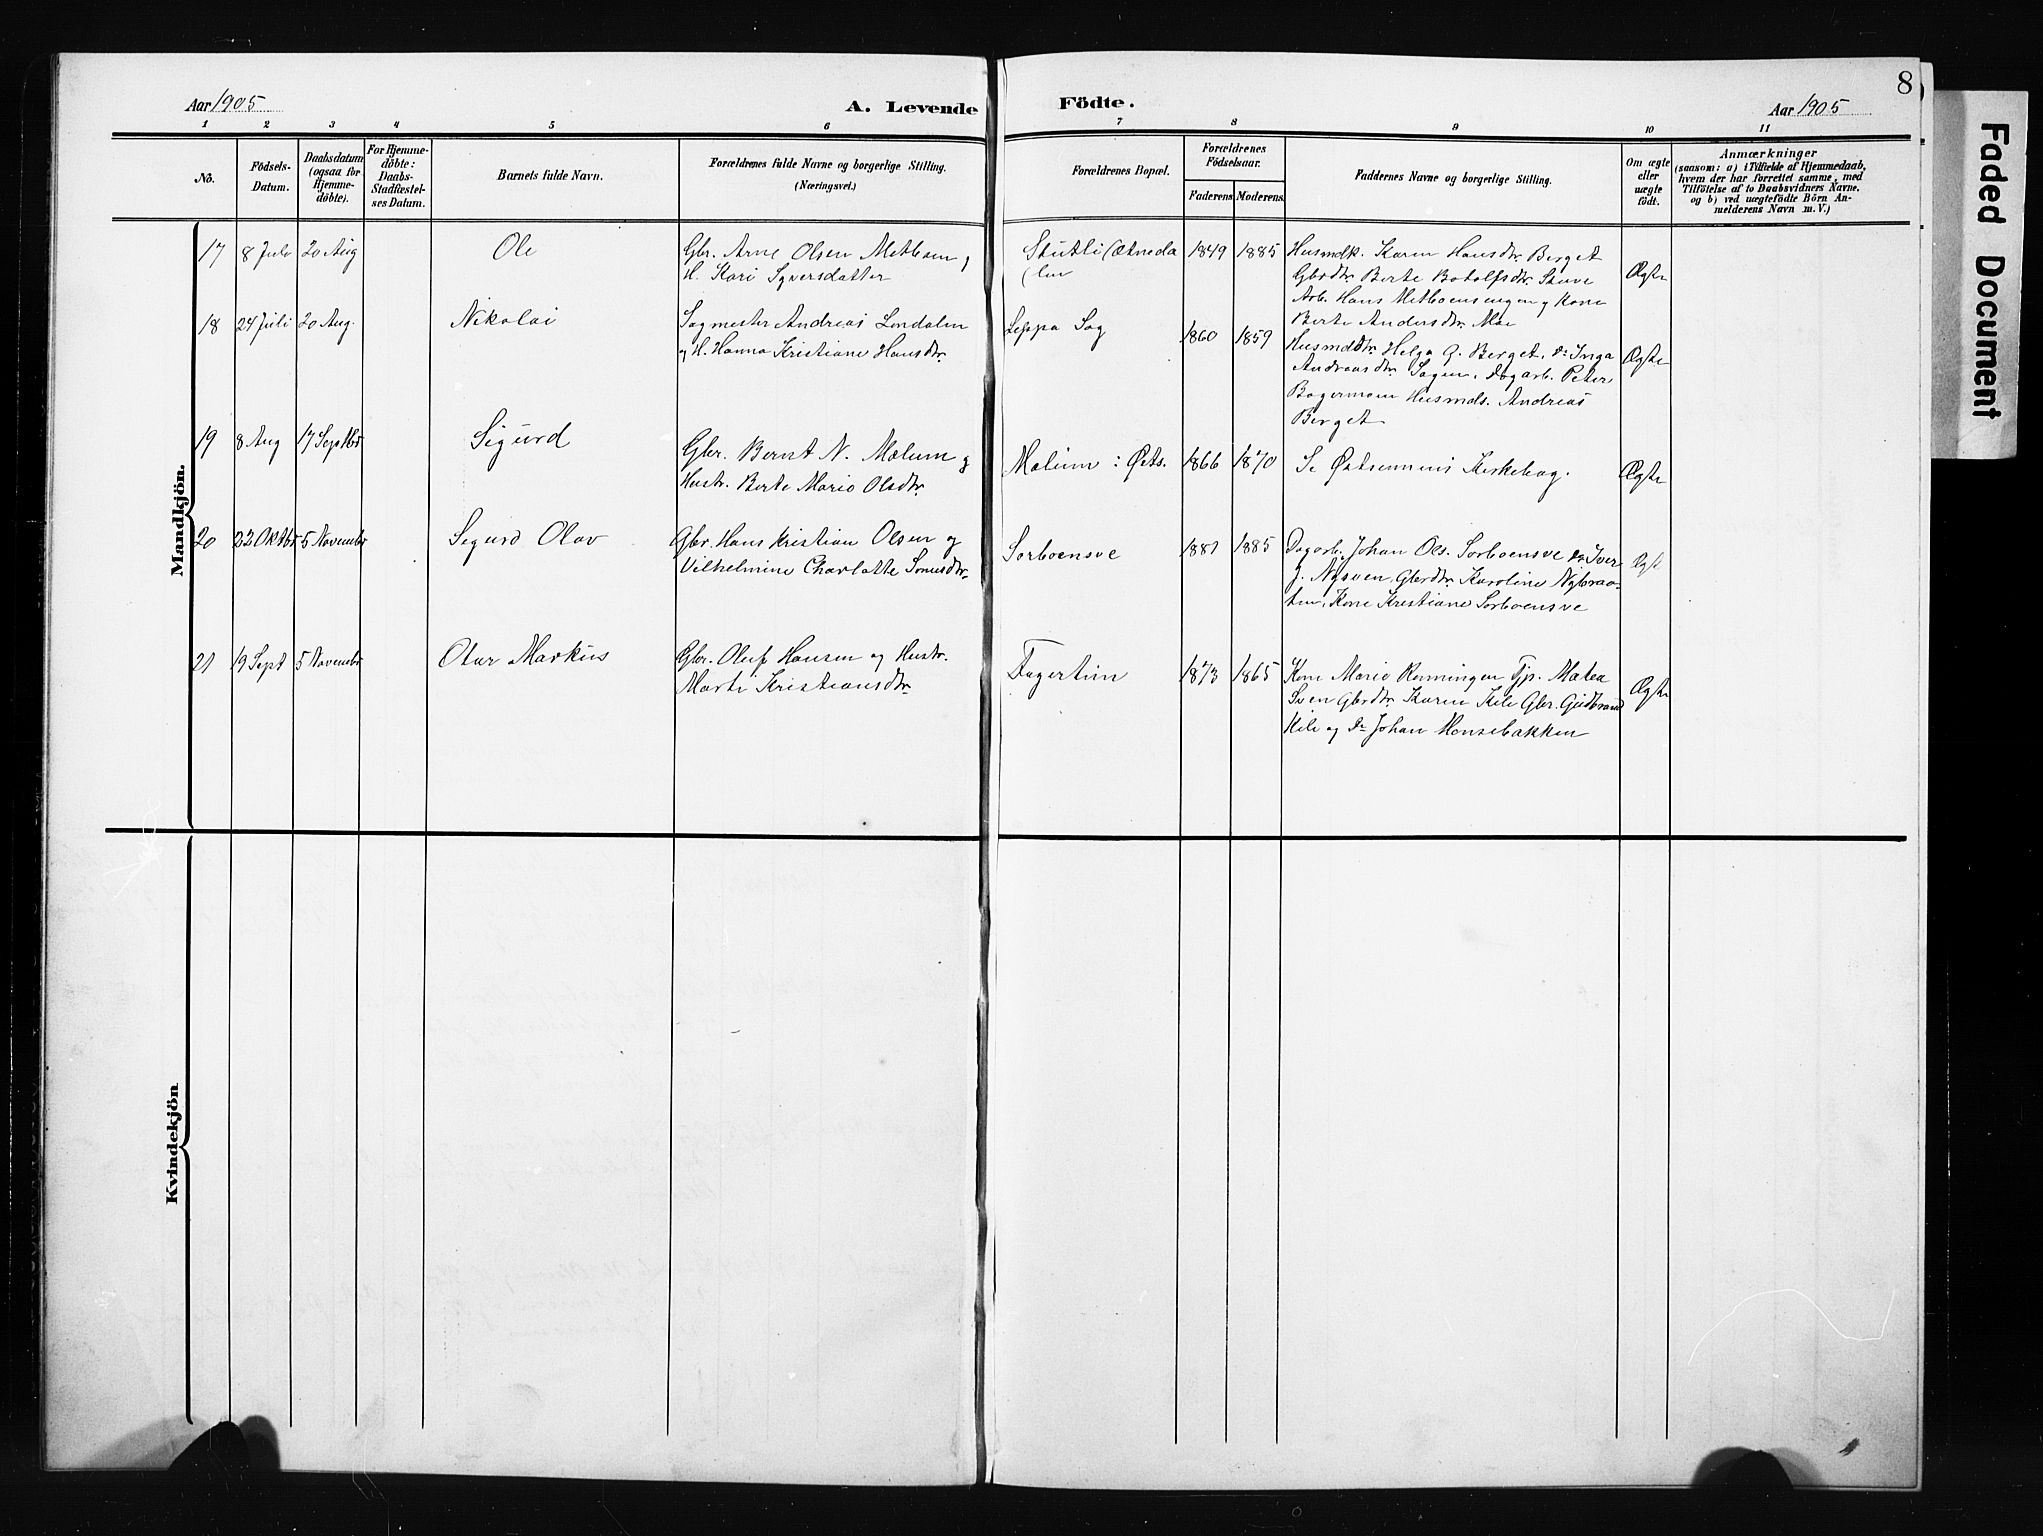 8
Faded Document
Aar 1905
A. Levende
Födte.
Aar 1905
1 2 3 4 5 6 7 8 9 10 11
No.
Födsels-
Datum.
Daabsdatum
(ogsaa for
Hjemme-
döbte).
For Hjemme-
döbte:
Daabs-
Stadfæstel-
ses Datum.
Barnets fulde Navn.
Forældrenes fulde Navne og borgerlige Stilling.
(Næringsvei.)
Forældrenes Bopæl.
Forældrenes
Födselsaar.
Faderens Moderens
Faddernes Navne og borgerlige Stilling.
Om ægte
eller
uægte
født.
Anmærkninger
(saasom: a) i Tilfælde af Hjemmedaab,
hvem der har forrettet samme, med
Tilföielse af to Daabsvidners Navne,
og b) ved uægtefödte Börn An-
melderens Navn m. V.)
Mandkjön.
17 8 Juli 20 Aug Ole
Gbr. Arne Olsen Metboen og
H. Kari Syversdatter
Stutli (Ætneda
len
1849 1885
Husmdk. Karen Hansdtr. Berget
Gbrdtr. Berte Botolfsdtr. Stuve
Arb. Hans Metboensengen og Kone
Berte Andersdtr. Moe
Ægte
18 24 Juli 20 Aug. Nikolai
Sagmester Andreas Lundalen
og H. Hanna Kristiane Hansdtr.
Leppa Sag
1860 1859
Husmdtr. Helga G. Berget, Do Inga
Andreasdtr. Sagen, Dagarb. Peter
Bagermoen Husmds. Andreas
Berget
Ægte
19 8 Aug 17 Septbr Sigurd
Gbr. Bernt N. Mælum og
Hustr. Berte Marie Olsdtr.
Mælum : Østs.
1866 1870
Se Østsinnens Kirkebog.
Ægte
20 22 Oktbr 5 Novembr Sigurd Olav
Gbr. Hans Kristian Olsen og
Vilhelmine Charlotte
Sorboensve
1881 1885
Dagarb. Johan Ols. Sorboensve Do Iver
J. Nysven, Gbrdtr. Karoline Nybraa-
ten, Kone Kristiane Sorboensve
Ægt
21 19 Sept 5 Novembr Olar Markus
Gbr. Oluf Hansen og Hustr.
Marte Kristiansdtr.
Fagertun
1873 1865
Kone Marie Rønningen Tjp. Matea
Sven Gbrdtr. Karen Kile Gbr. Gudbrand
Kile og Do Johan Hensebakken
Ægte
Kvindekjön